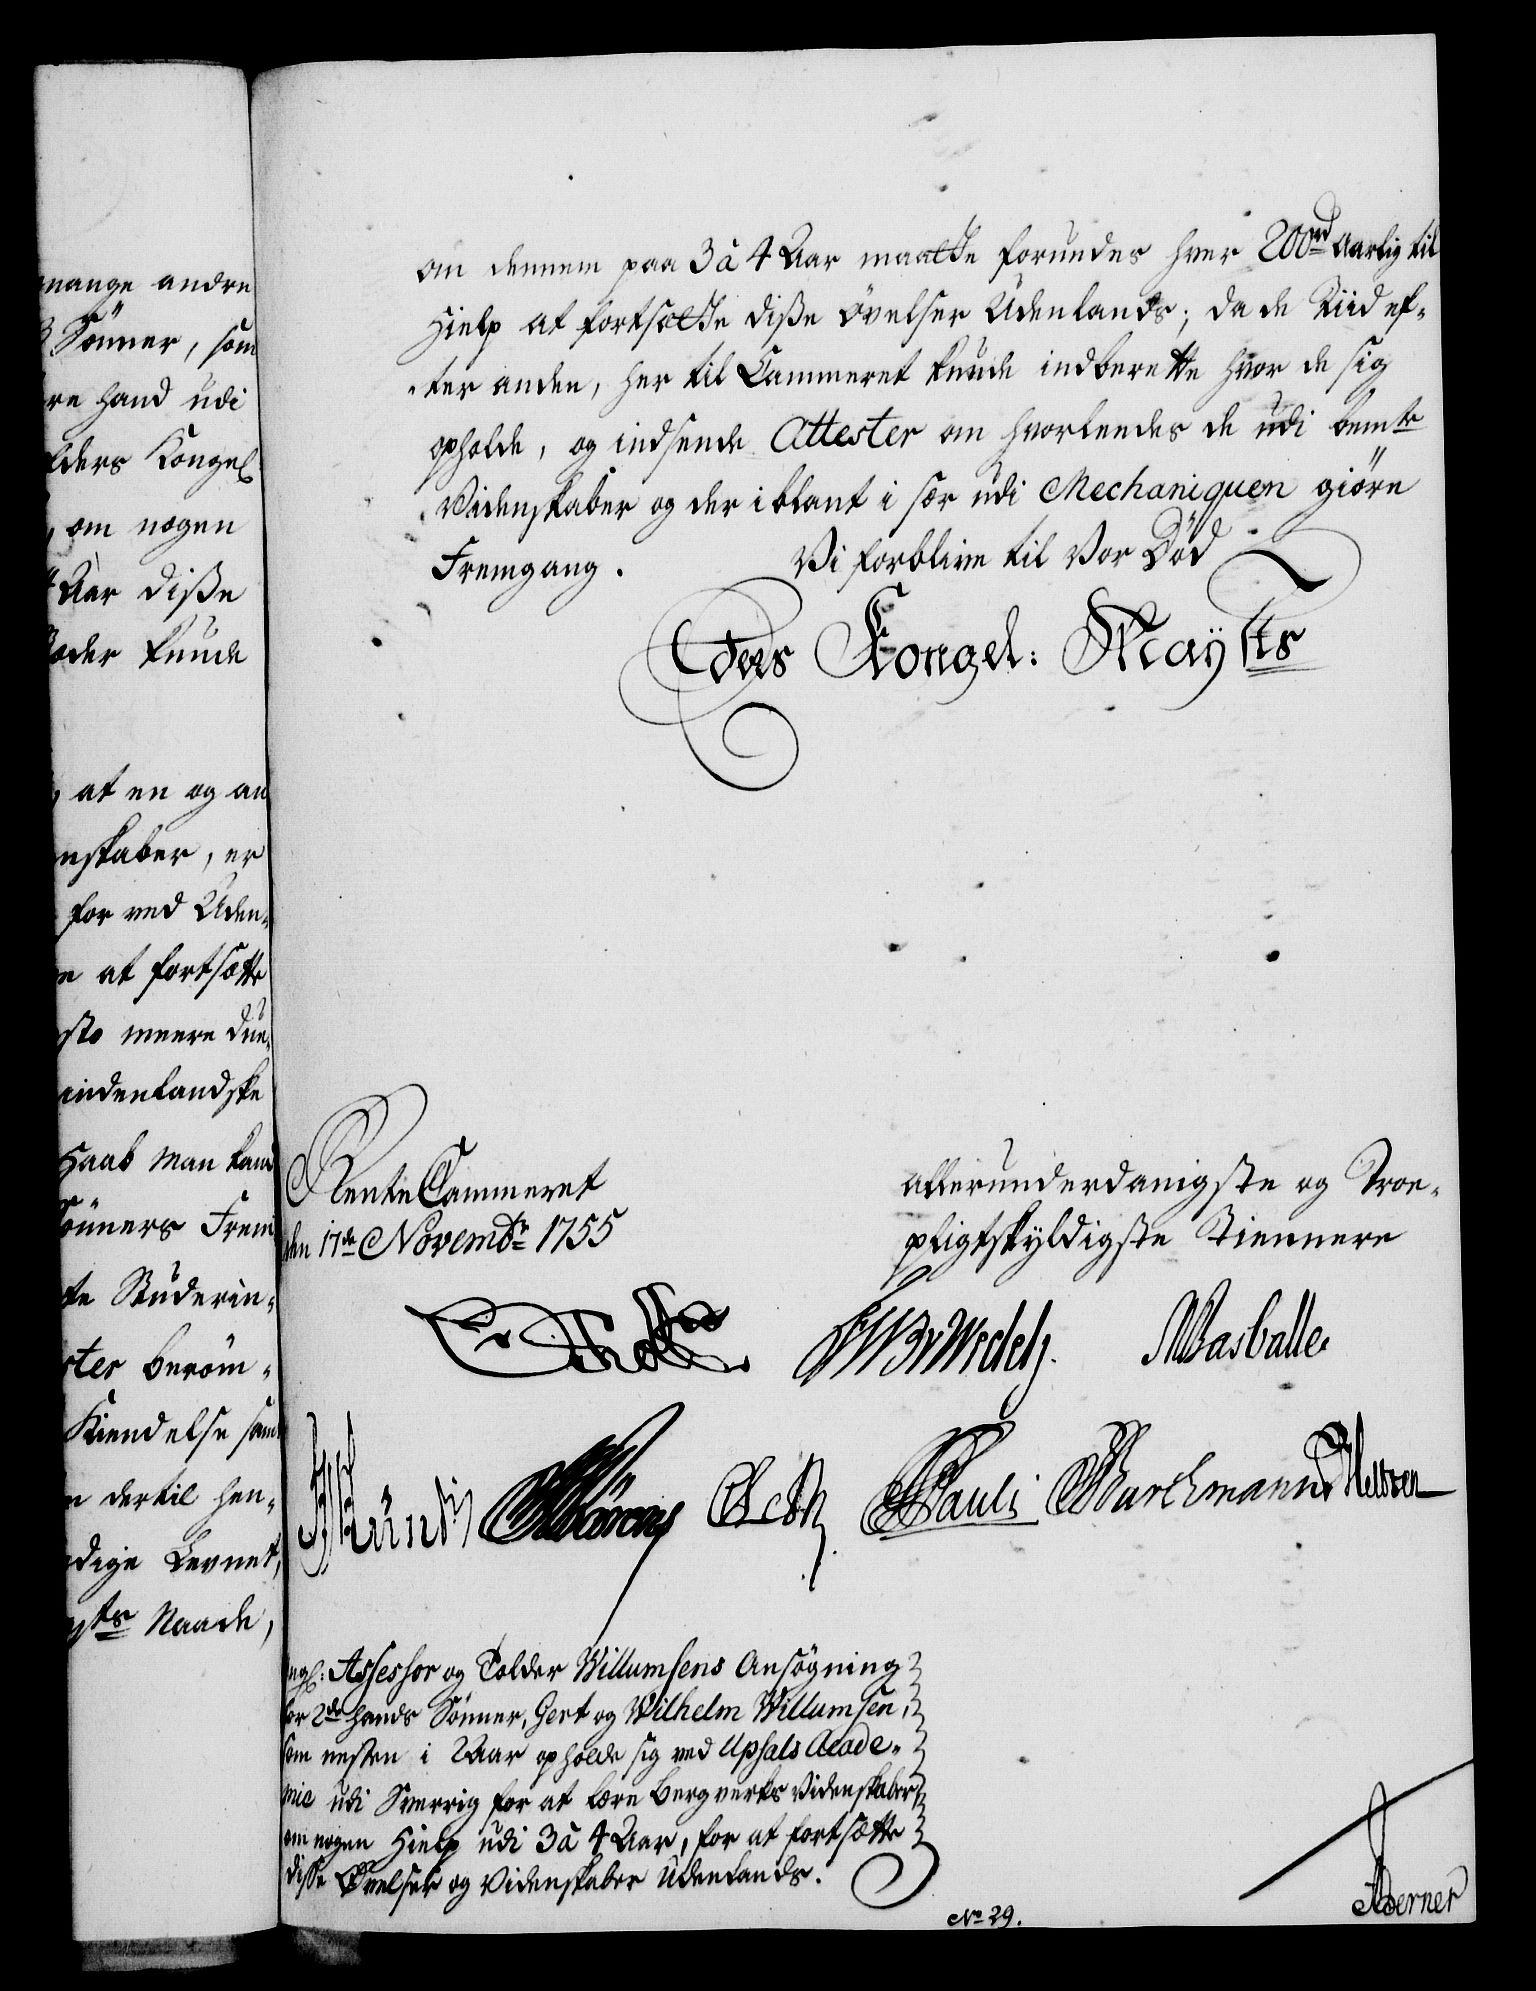 mange andre
Sönner, som
re hand udi
lders Kongel
, om nogen
4 Aar diße
kunde
at en og an
nskaber, er
for ved Uden-
at fortsætte
meere due-
indenlandske
Haab man kand
önners Frem
te Studerin-
ster beröm-
Kiendelse samt
dertil hen-
dige Levnet,
sts Naade,
om dennem paa 3 à 4 Aar maatte forundes hver 200 rd aarlig til
Hielp at fortsætte diße övelser Udenlands; da de Tiid ef-
-ter anden, her til Cammeret kunde indberette hvor de sig
opholde, og indsende Attester om hvorleedes de udi bemte
Videnskaber og der iblant i sær udi Mechaniquen giöre
Fremgang. Vi forblive til Vor Död
Ders Kongel: Mayts
RenteCammeret
den 17de Novembr 1755
allerunderdanigste og Troe-
pligtskyldigste Tiennere
Holt Wedely. Masballe
Pauli Barchmann
ngl: Assessor og Tolder Willumsens Ansögning
for 2de hands Sönner, Gert og Wilhelm Willumsen,
som nesten i 2 Aar opholde sig ved Upsals Acade-
mie udi Sverrig for at lære Bergverks Videnskaber,
om nogen Hielp udi 3 à 4 Aar, for at fortsætte
disse Övelser og Videnskaber Udenlands.
No 29.
Aderner